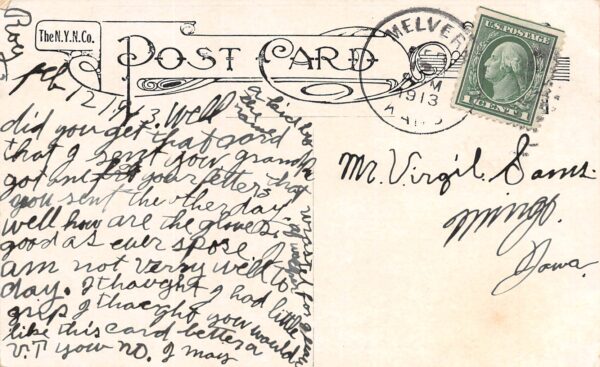 The N.Y.N. Co.
POST CARD
MELVERN
1913
KANS
U.S. POSTAGE
1 CENT 1
Feb 12 1913. Well
did you get that card
that I sent your grandpa
got your letters that
you sent the other day
well how are the gloves.
good as ever spose.
am not verry well to
day. I thought I had little
grip I thaeght you would
like this card better a
V.T your no. I may
Mr. Virgil Sams.
Mingo.
Iowa.